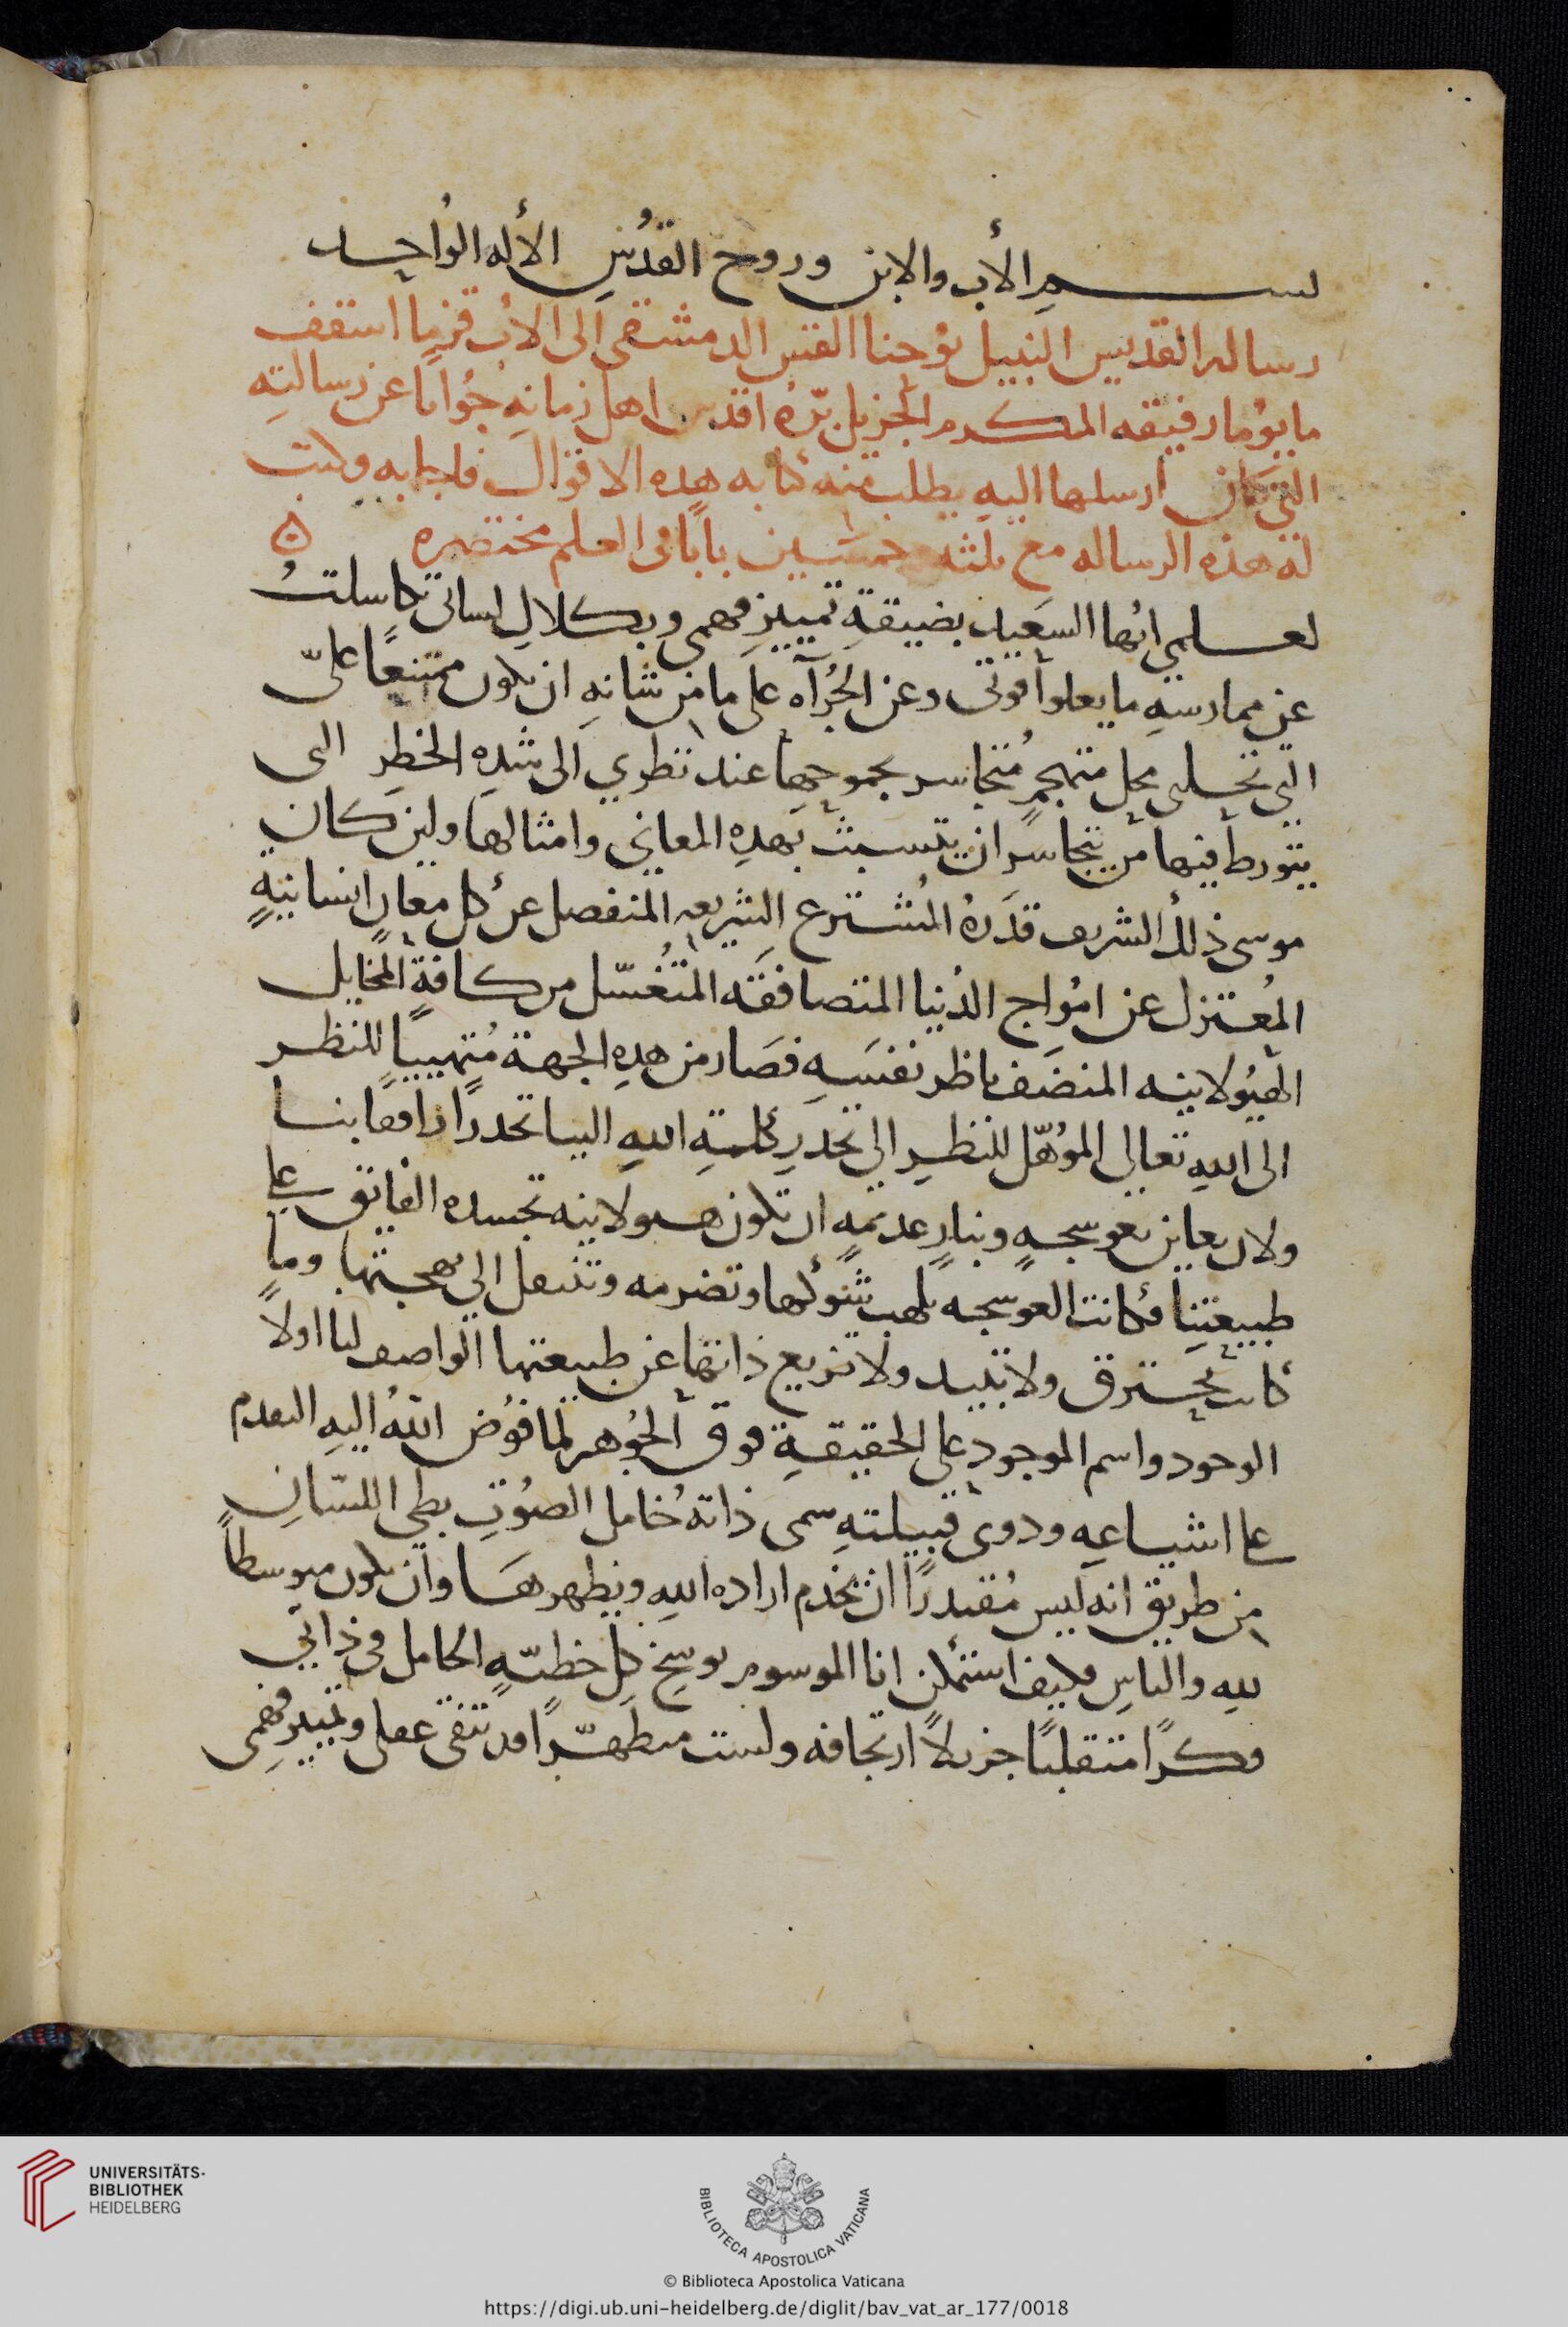 بسم الأب والابن وروح القدس الأله الواحد
رساله القديس النبيل يوحنا القس الدمشقي الى الاب قزما اسقف
مايوما رفيقه المكرم الجزيل برّه اقدس اهل زمانه جوابًا عن رسالتِه
التي كان ارسلها اليه يطلب منه كتابه هده الاقوال فاجابه وكتب
له هذه الرساله مع ثلثه وخمسين بابًا في العلم مختصره ه
لعلمي ايها السعيد بضيقةِ تمييزِ فهمي وبكلالِ لساني تكاسلتُ
عن ممارسةِ ما يعلوا قوتي وعن الجُرآه على ما من شانهِ ان يكون ممتنعًا عليّ
التي تحلني محل متهجمٍ مُتجاسر بجموحِها عند نظري الى شدهِ الخطرِ التى
يتورط فيها من يتجاسر ان يتسبث بهدهِ المعاني وامثالها ولين كان
موسى ذلك الشريف قدَرهُ المُشترع الشريعه المنفصل عن كل معانٍ انسانيهٍ
المُعتزل عن امواج الدُنيا المتصافقَه المتُغسّل من كافةِ المخايل
الهيُولانيه المنضَف ناظر نفسَهِ فصَار من هدهِ الجهة مُتهيبيا للنظر
الى اللهِ تعالى الموُهّل للنظرِ الى تحدرِ كلمتهِ اللهِ الينا تحدرًا رافقًا بنا
ولان يعاين بعوسجهٍ وبنارٍ عديمهٍ ان تكون هيولانيه تجسده الفايق على
طبيعتِنا فكانت العوسجه تلهب شوكها وتضرمه وتنتقل الى بهجتها وما
كانت تحترق ولا تبيد ولا تزيع ذاتها عن طبيعتها الواصف لنا اولًا
الوجود واسم الموجود على الحقيقةِ فوق الجوهر لما فوض اللهُ اليهِ التقدم
على اشياعهِ ودوى قبيلتهِ سمى ذاتهُ خامل الصوُتِ بطي اللسّانِ
من طريق انه ليس مُقتدرًا ان يخدم اراده اللهِ ويظهرهَا وان يكون متوسطاً
للهِ والناسِ فكيف استمكن انا الموسوم بوسخ كل خطيّهٍ الحامل في ذاتي
فكرًا متقلبًا جزيلاً ارتجافه ولست متطهّرًا قد تنقى عقلي وتمييز فهمي
UNIVERSITÄTS-
BIBLIOTHEK
HEIDELBERG
BIBLIOTECA APOSTOLICA VATICANA
© Biblioteca Apostolica Vaticana
https://digi.ub.uni-heidelberg.de/diglit/bav_vat_ar_177/0018